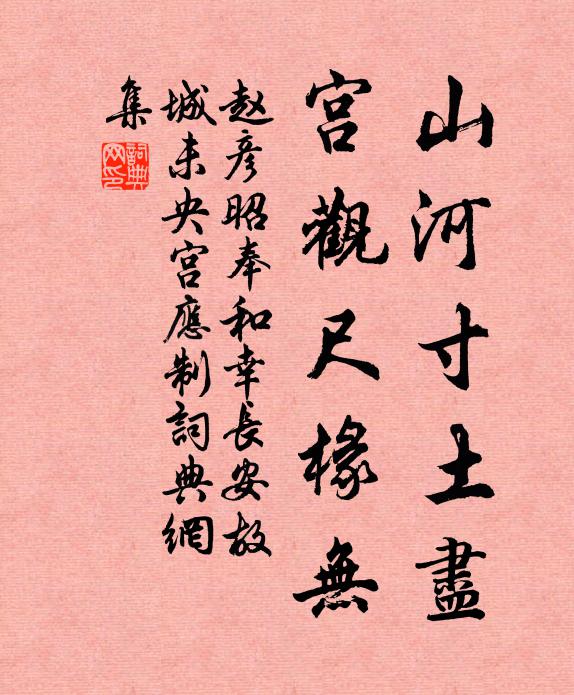 山河寸土盡
宮觀尺椽無
赵彦昭奉和幸長安故
城未央宮應制詞典網
集
詞典
网印